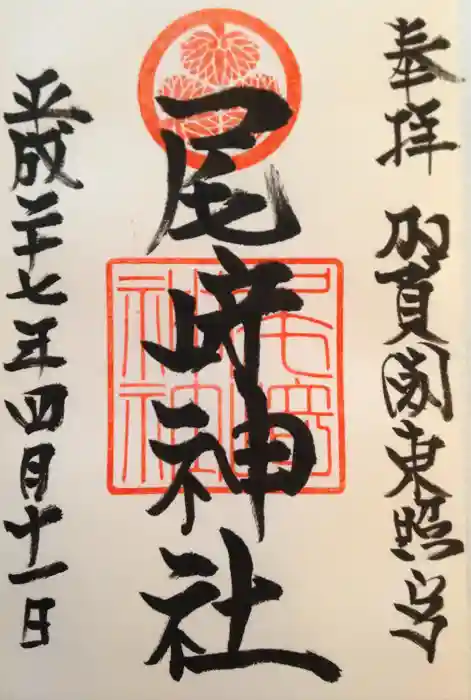 奉拝 加賀国東照宮
尾﨑神社
平成二十七年四月十一日
尾﨑神社